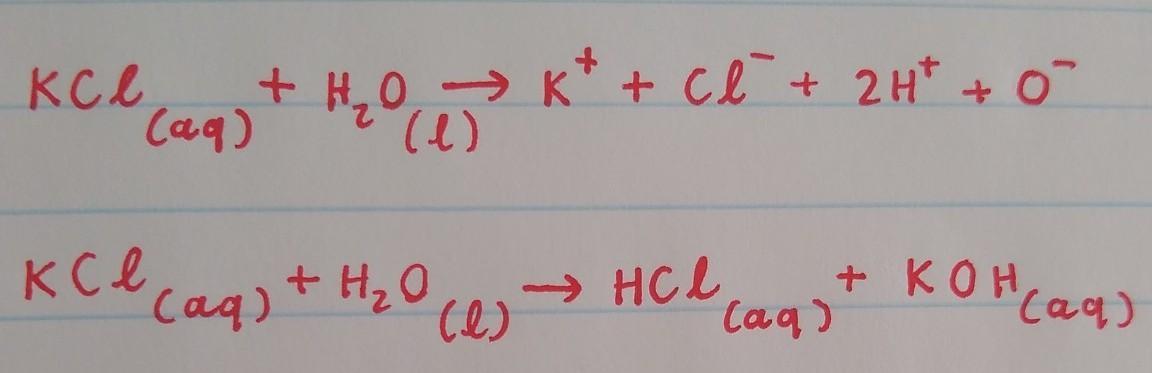 KCl(aq) + H₂O(l) → K⁺ + Cl⁻ + 2H⁺ + O⁻
KCl(aq) + H₂O(l) → HCl(aq) + KOH(aq)